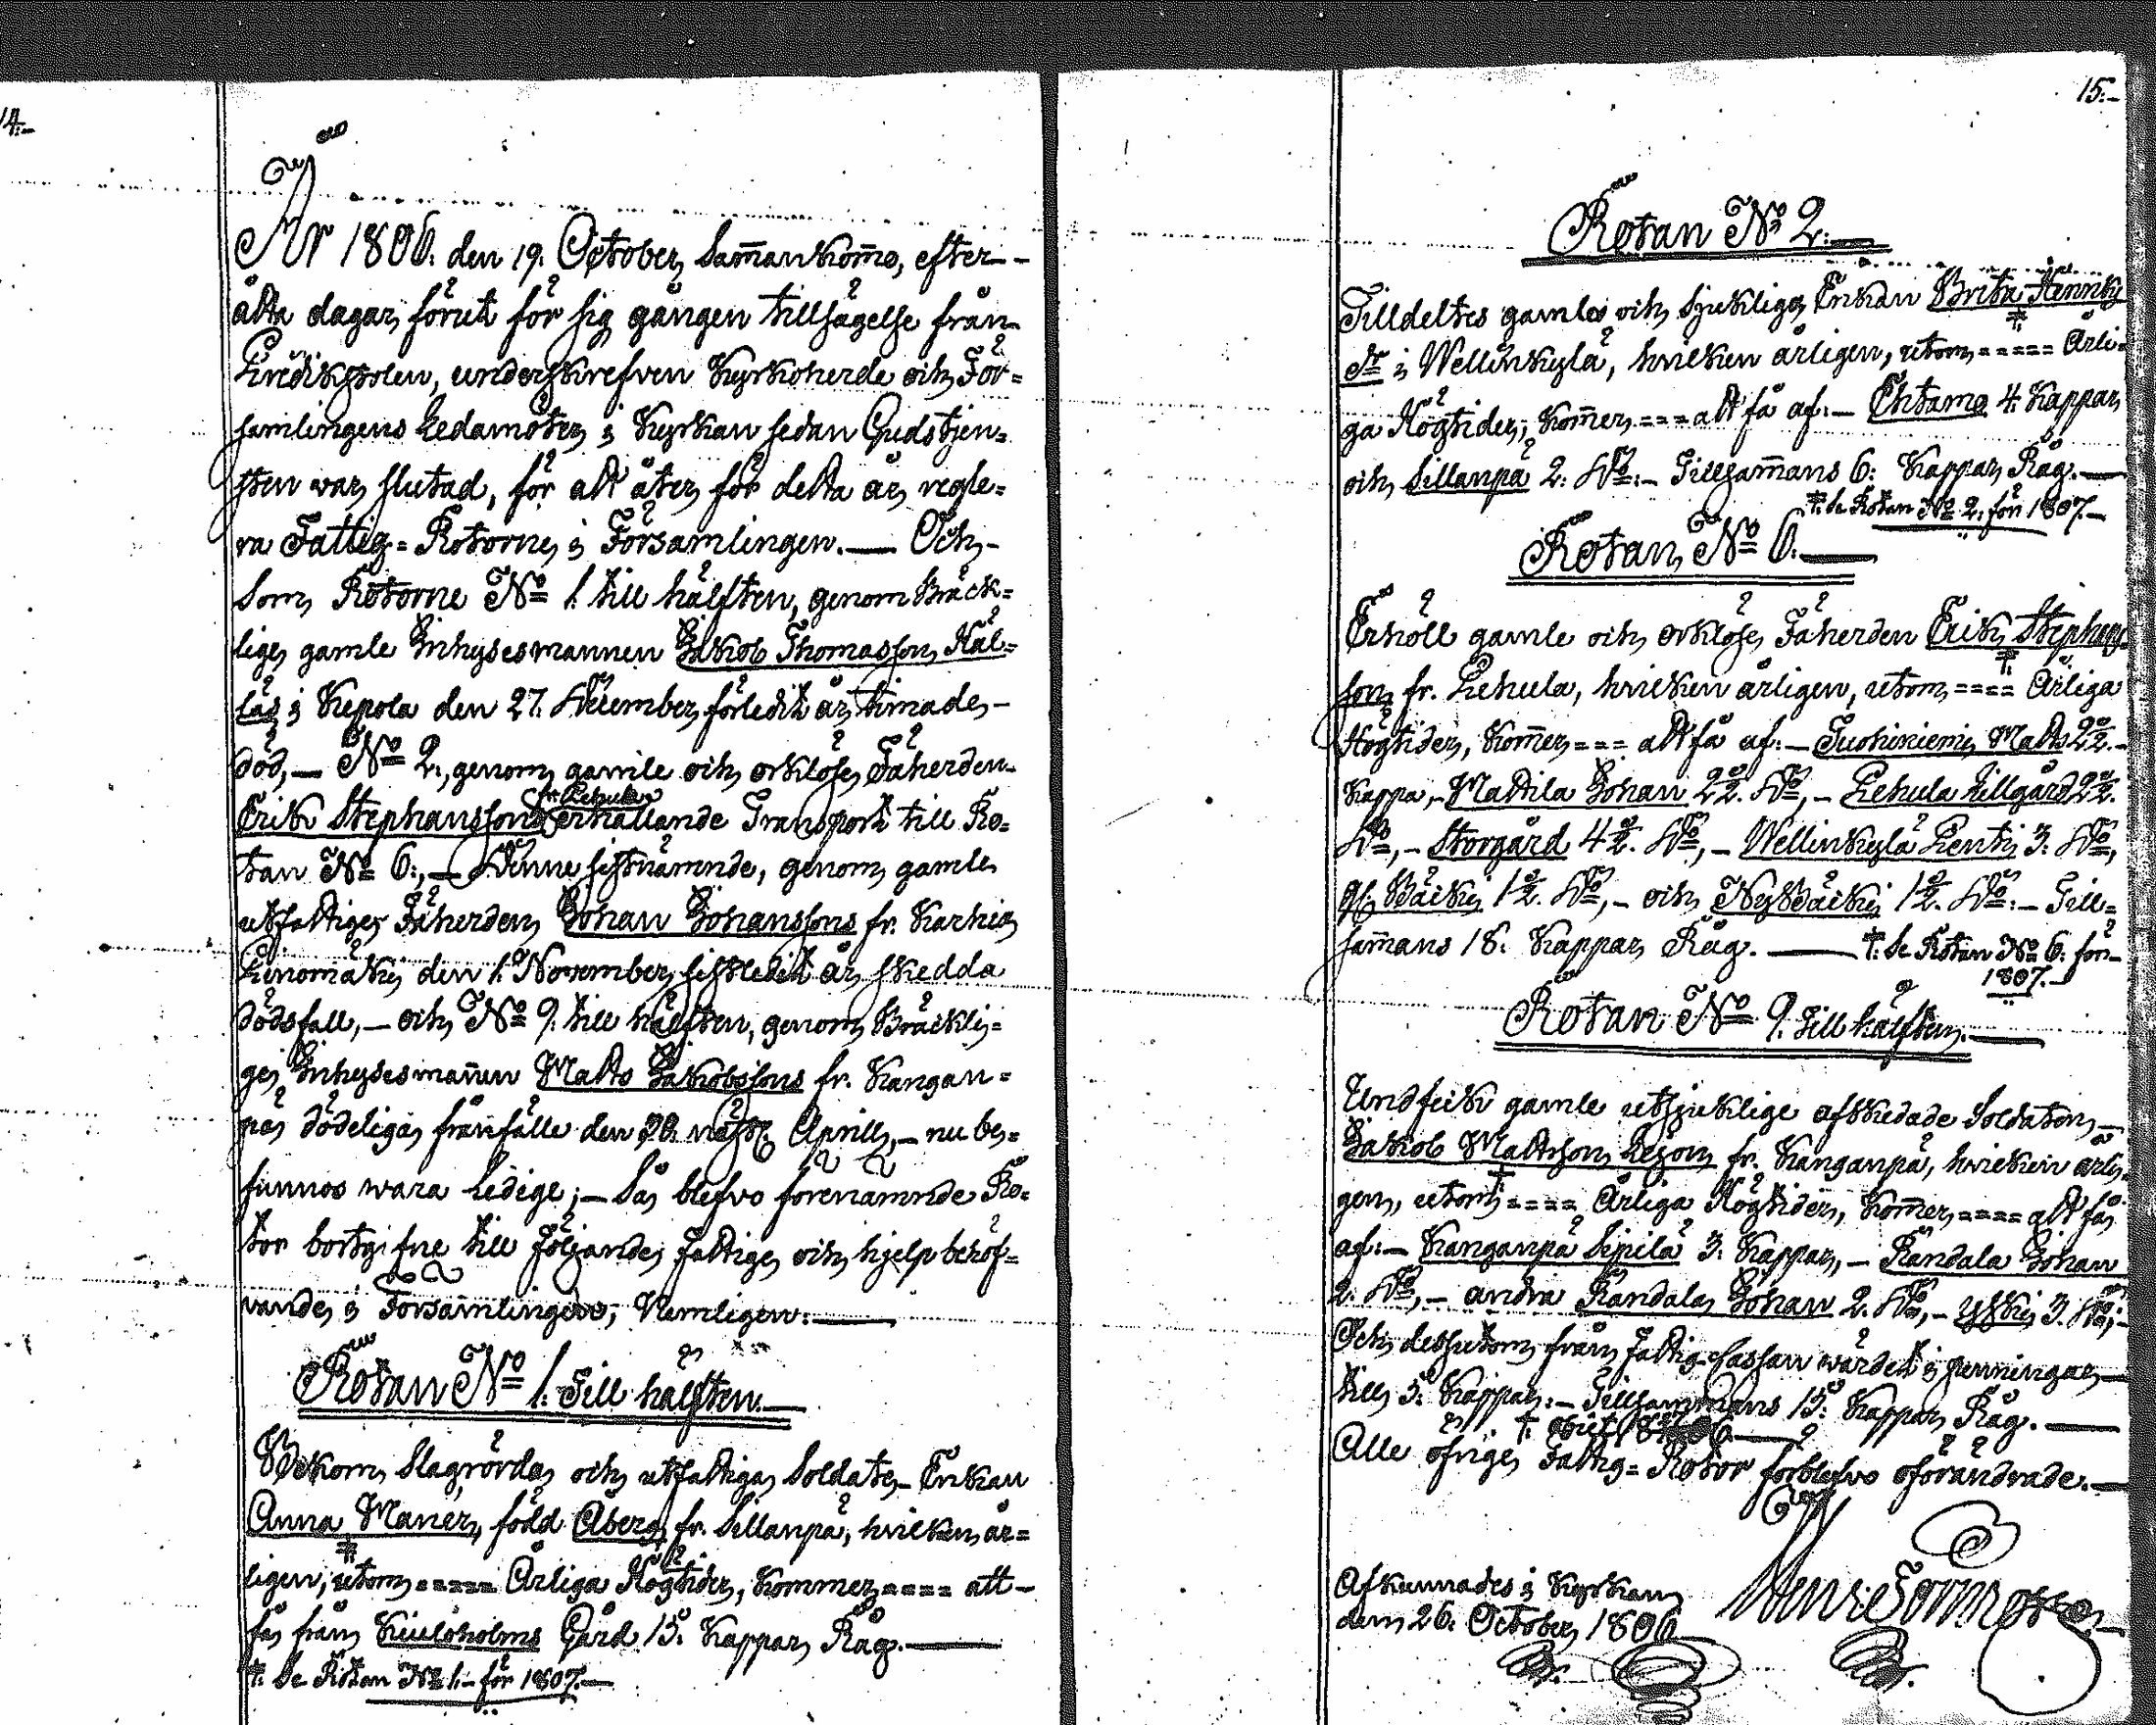 14.-
År 1806. den 19. October, Sam̄ankom̄o, efter-
åtta dagar, förut för sig gången tillsägelse från
Predikstolen, underskrefven Kyrkoherde och För=
samlingens Ledamöter, i Kyrkan sedan Gudstjen=
sten war, slutad, för att åter, för detta år, regle=
ra Fattig=Rotorne, i Församlingen.— Och,-
Som, Rotorne No 1. till hälften, genom Bräck=
lige, gamle Inhysesmannen Jakob Thomasson, Häl=
läs i Kepola den 27. December, förledit år, timade,-
död,— No 2., genom, gamle och orklöse, Fäherden-
Erik Stephanssons fr. Lehula erhållande Transport till Ro=
tan No 6.,— Denne sistnämnde, genom, gamle
utfattige, Fäherden, Johan Johanssons fr. Karhia
Heinomäki, den 1. November, sistledit år, skedda
dödsfall,— och No 9. till hälften, genom, Bräckli=
ge, Inhysesman̄en Matts Jakobssons fr. Kangan=
pä, dödeliga, frånfälle den 20. nästl. Aprill,— nu be=
funnos wara Ledige;— Så, blefvo förenämnde Ro=
tor bortgifne till följande, fattige, och hjelpbehöf=
vande, i Församlingen, Nemligen.—
Rotan No 1. Till hälften.—
Bekom, Slagrörda, och utfattiga, Soldate-Enkan
Anna Maner, född Åberg, fr. Sillanpä, hvilken, år=
ligen, utom,===== Årliga Högtider, kommer,==== att-
få, från, Kiuloholms Gård 15. Kappar, Råg.—
†. Se Rotan No 1.- för 1807.—
15.-
Rotan No 2.—
Tilldeltes gamla och, sjukliga, Enkan Brita Henriks
dr i Wellinkylä, hvilken årligen, utom,===== Årli=
ga Högtider, kom̄er,==== att få af:— Ohtamo 4. Kappar,
och, Sillanpä 2. Do.— Tillsam̄ans 6. Kappar, Råg.—
†. Se Rotan No 2. för 1807.—
Rotan, No 6.—
Erhöll gamle och, orklöse, Fäherden Erik Stephans
son, fr. Lehula, hvilken årligen, utom,==== Årliga
Högtider, kom̄er,=== att få af:— Tuohiniemi, Matts 2½.-
Kappa,- Mattila Johan 2½. Do,- Lehula Lillgård 2½.
Do,- Storgård 4½. Do,- Wellinkylä Pentti, 3. Do,
gl. Bäcki, 1½. Do,- och, Ny Bäcki, 1½. Do.- Till=
sam̄ans 18. Kappar, Råg.— †. Se Rotan No 6. för-
1807.-
Rotan No 9. Till hälften.—
Undfeik gamle utsjuklige afskedade Soldaten,—
Jakob Mattsson Lejon, fr. Kanganpä, hvilken årli=
gen, utom,==== Årliga Högtider, kom̄er,==== att få,
af:— Kanganpä Sipilä 3. Kappar,— Randala Johan
2. Do,- andra Randala, Johan 2. Do,- Yski, 3. Do,-
Och, dessutom, från, Fattig-Cassan wärdet i penningar,—
till, 5. Kappar.— Tillsammans 15. Kappar, Råg.—
†. obiit
Alle öfrige, Fattig=Rotor förblefvo oförändrade.—
Afkunnades i Kyrkan,
dem 26. October, 1806.